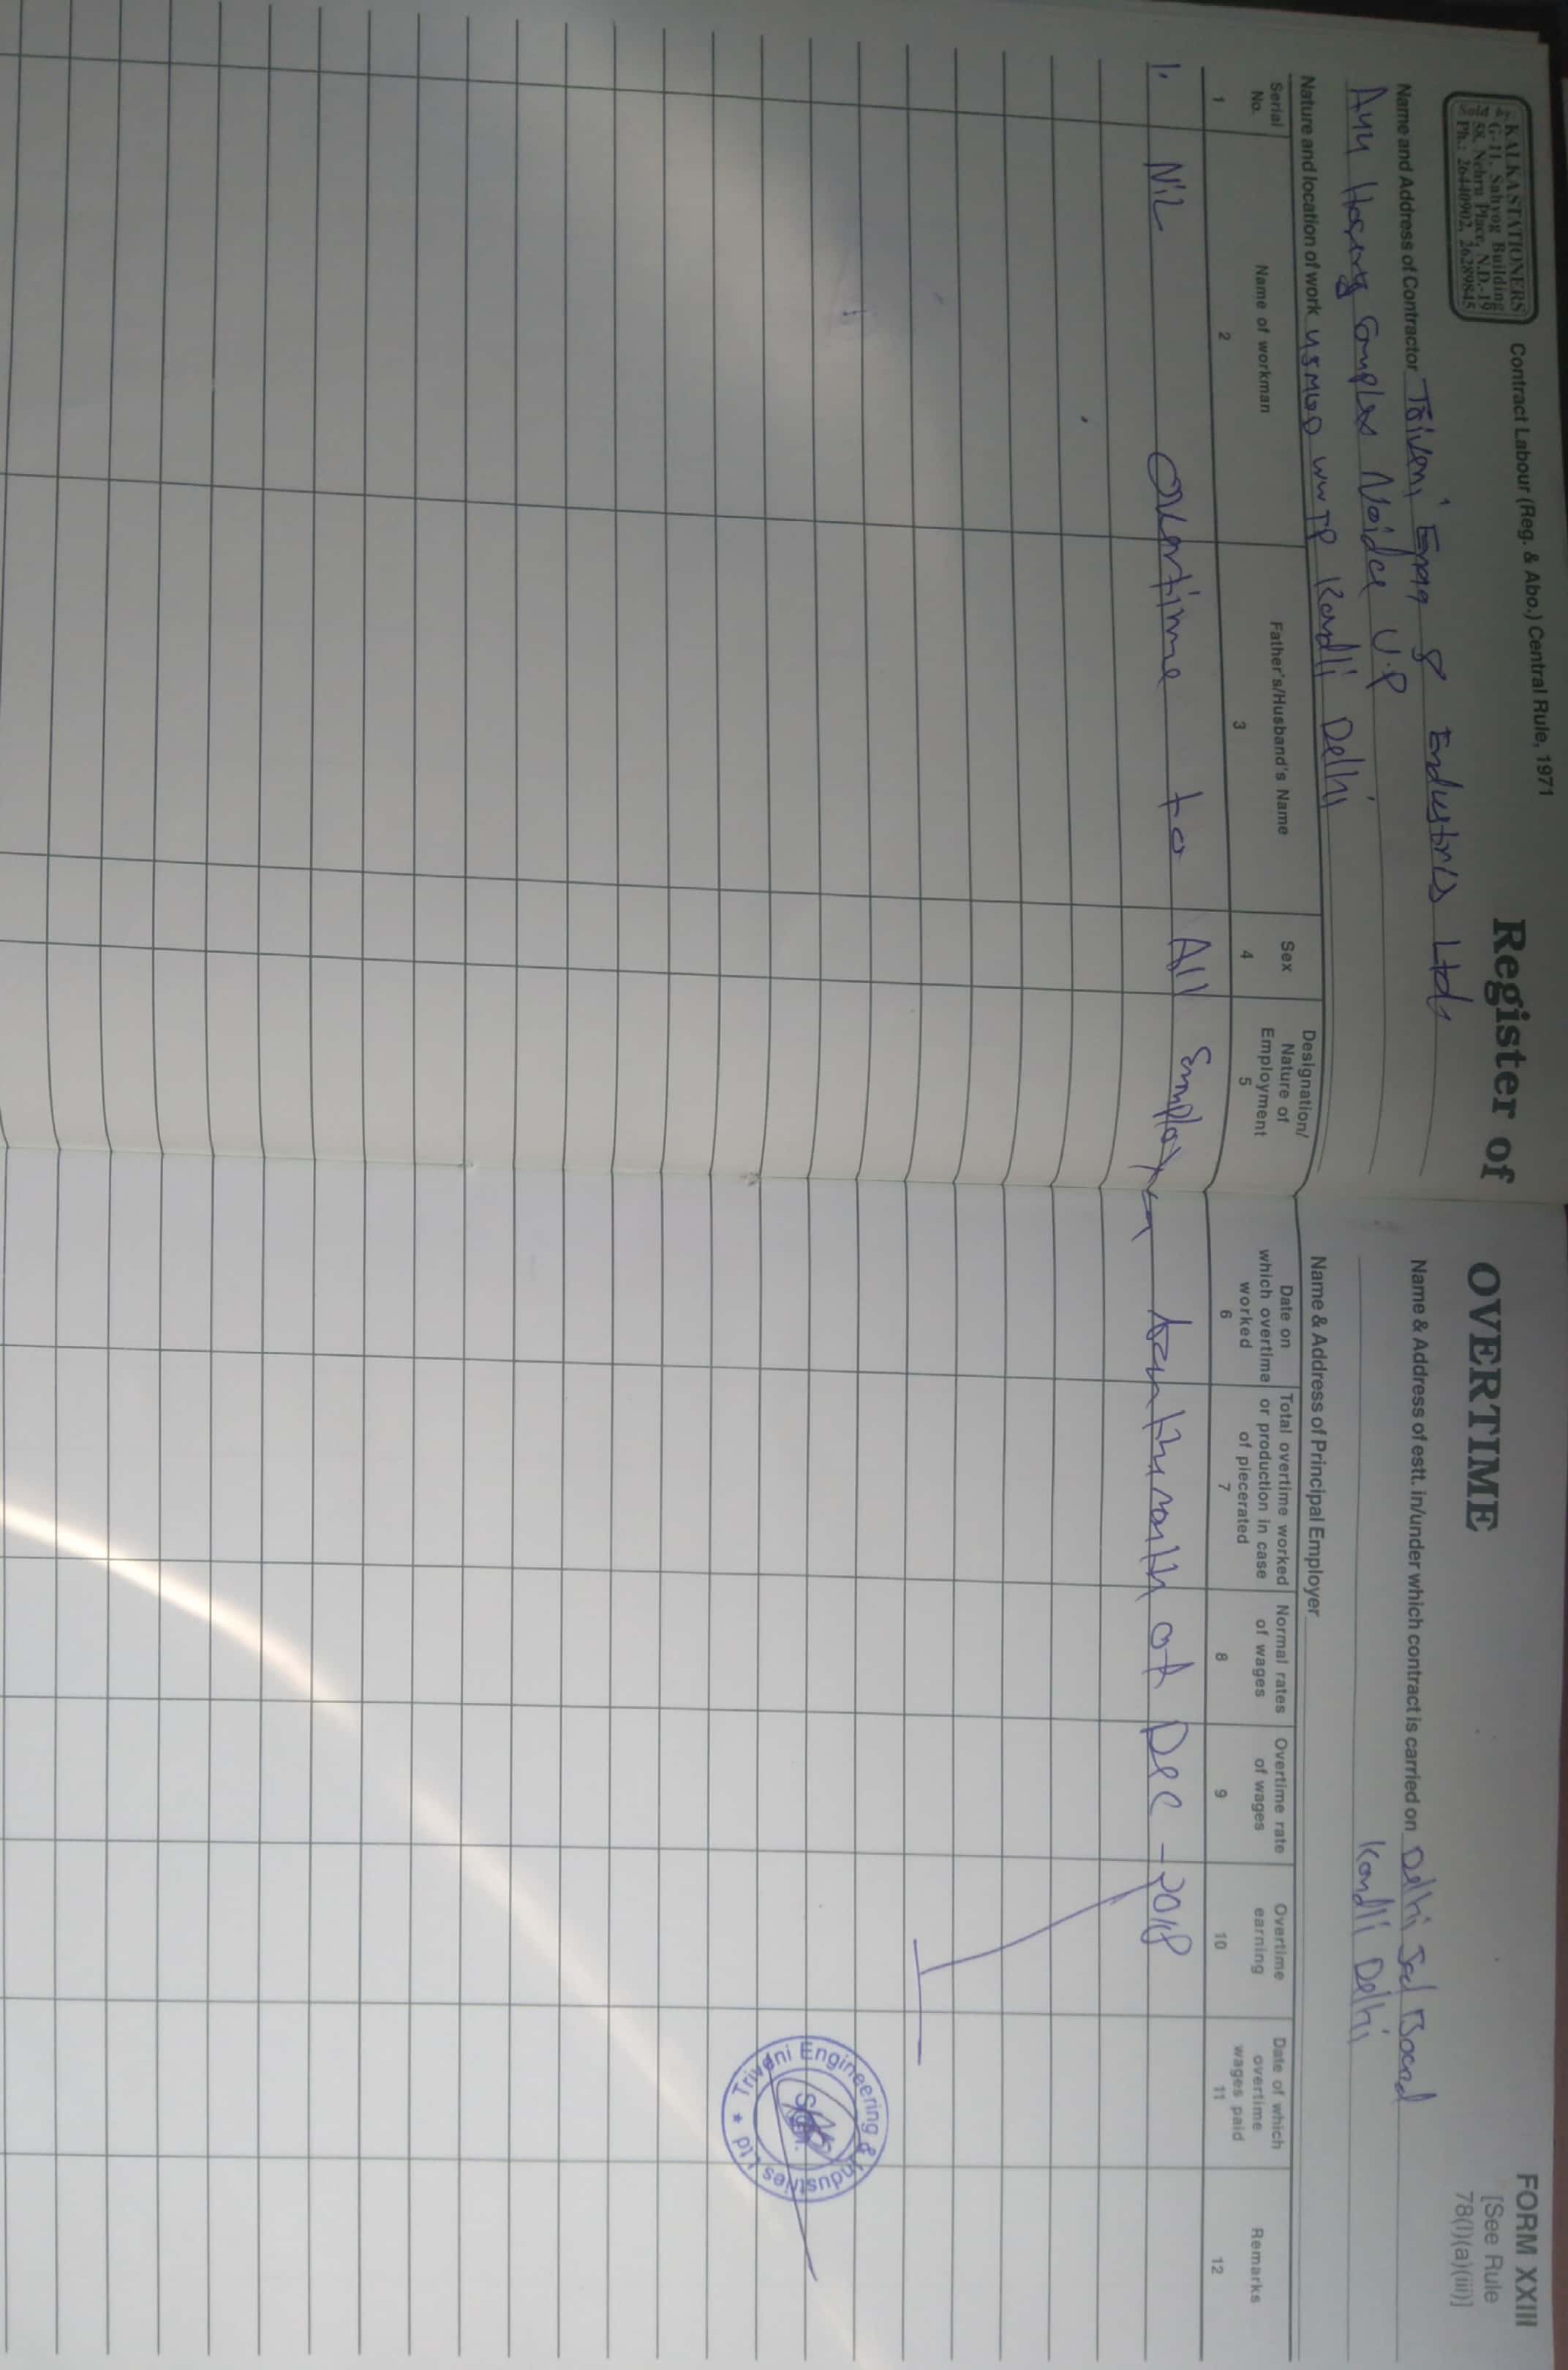 KALKA STATIONERS
Sold by G-11, Sahyog Building
58, Nehru Place, N.D.-19
Ph.: 26440902, 26289845
Contract Labour (Reg. & Abo.) Central Rule, 1971
Register of OVERTIME
FORM XXIII
[See Rule
78(I)(a)(iii)]
Name and Address of Contractor Triveni Engg & Industries Ltd
Complex Noida U.P
Nature and location of work 45MGD WWTP Kondli Delhi
Name & Address of estt. in/under which contract is carried on Delhi Jal Board
Kondli Delhi
Name & Address of Principal Employer
Serial No. Name of workman Father's/Husband's Name Sex Designation/ Nature of Employment Date on which overtime worked Total overtime worked or production in case of piecerated Normal rates of wages Overtime rate of wages Overtime earning Date of which overtime wages paid Remarks
1 2 3 4 5 6 7 8 9 10 11 12
1. Nil Overtime to All month of Dec - 2018
Triveni Engineering & Industries Ltd